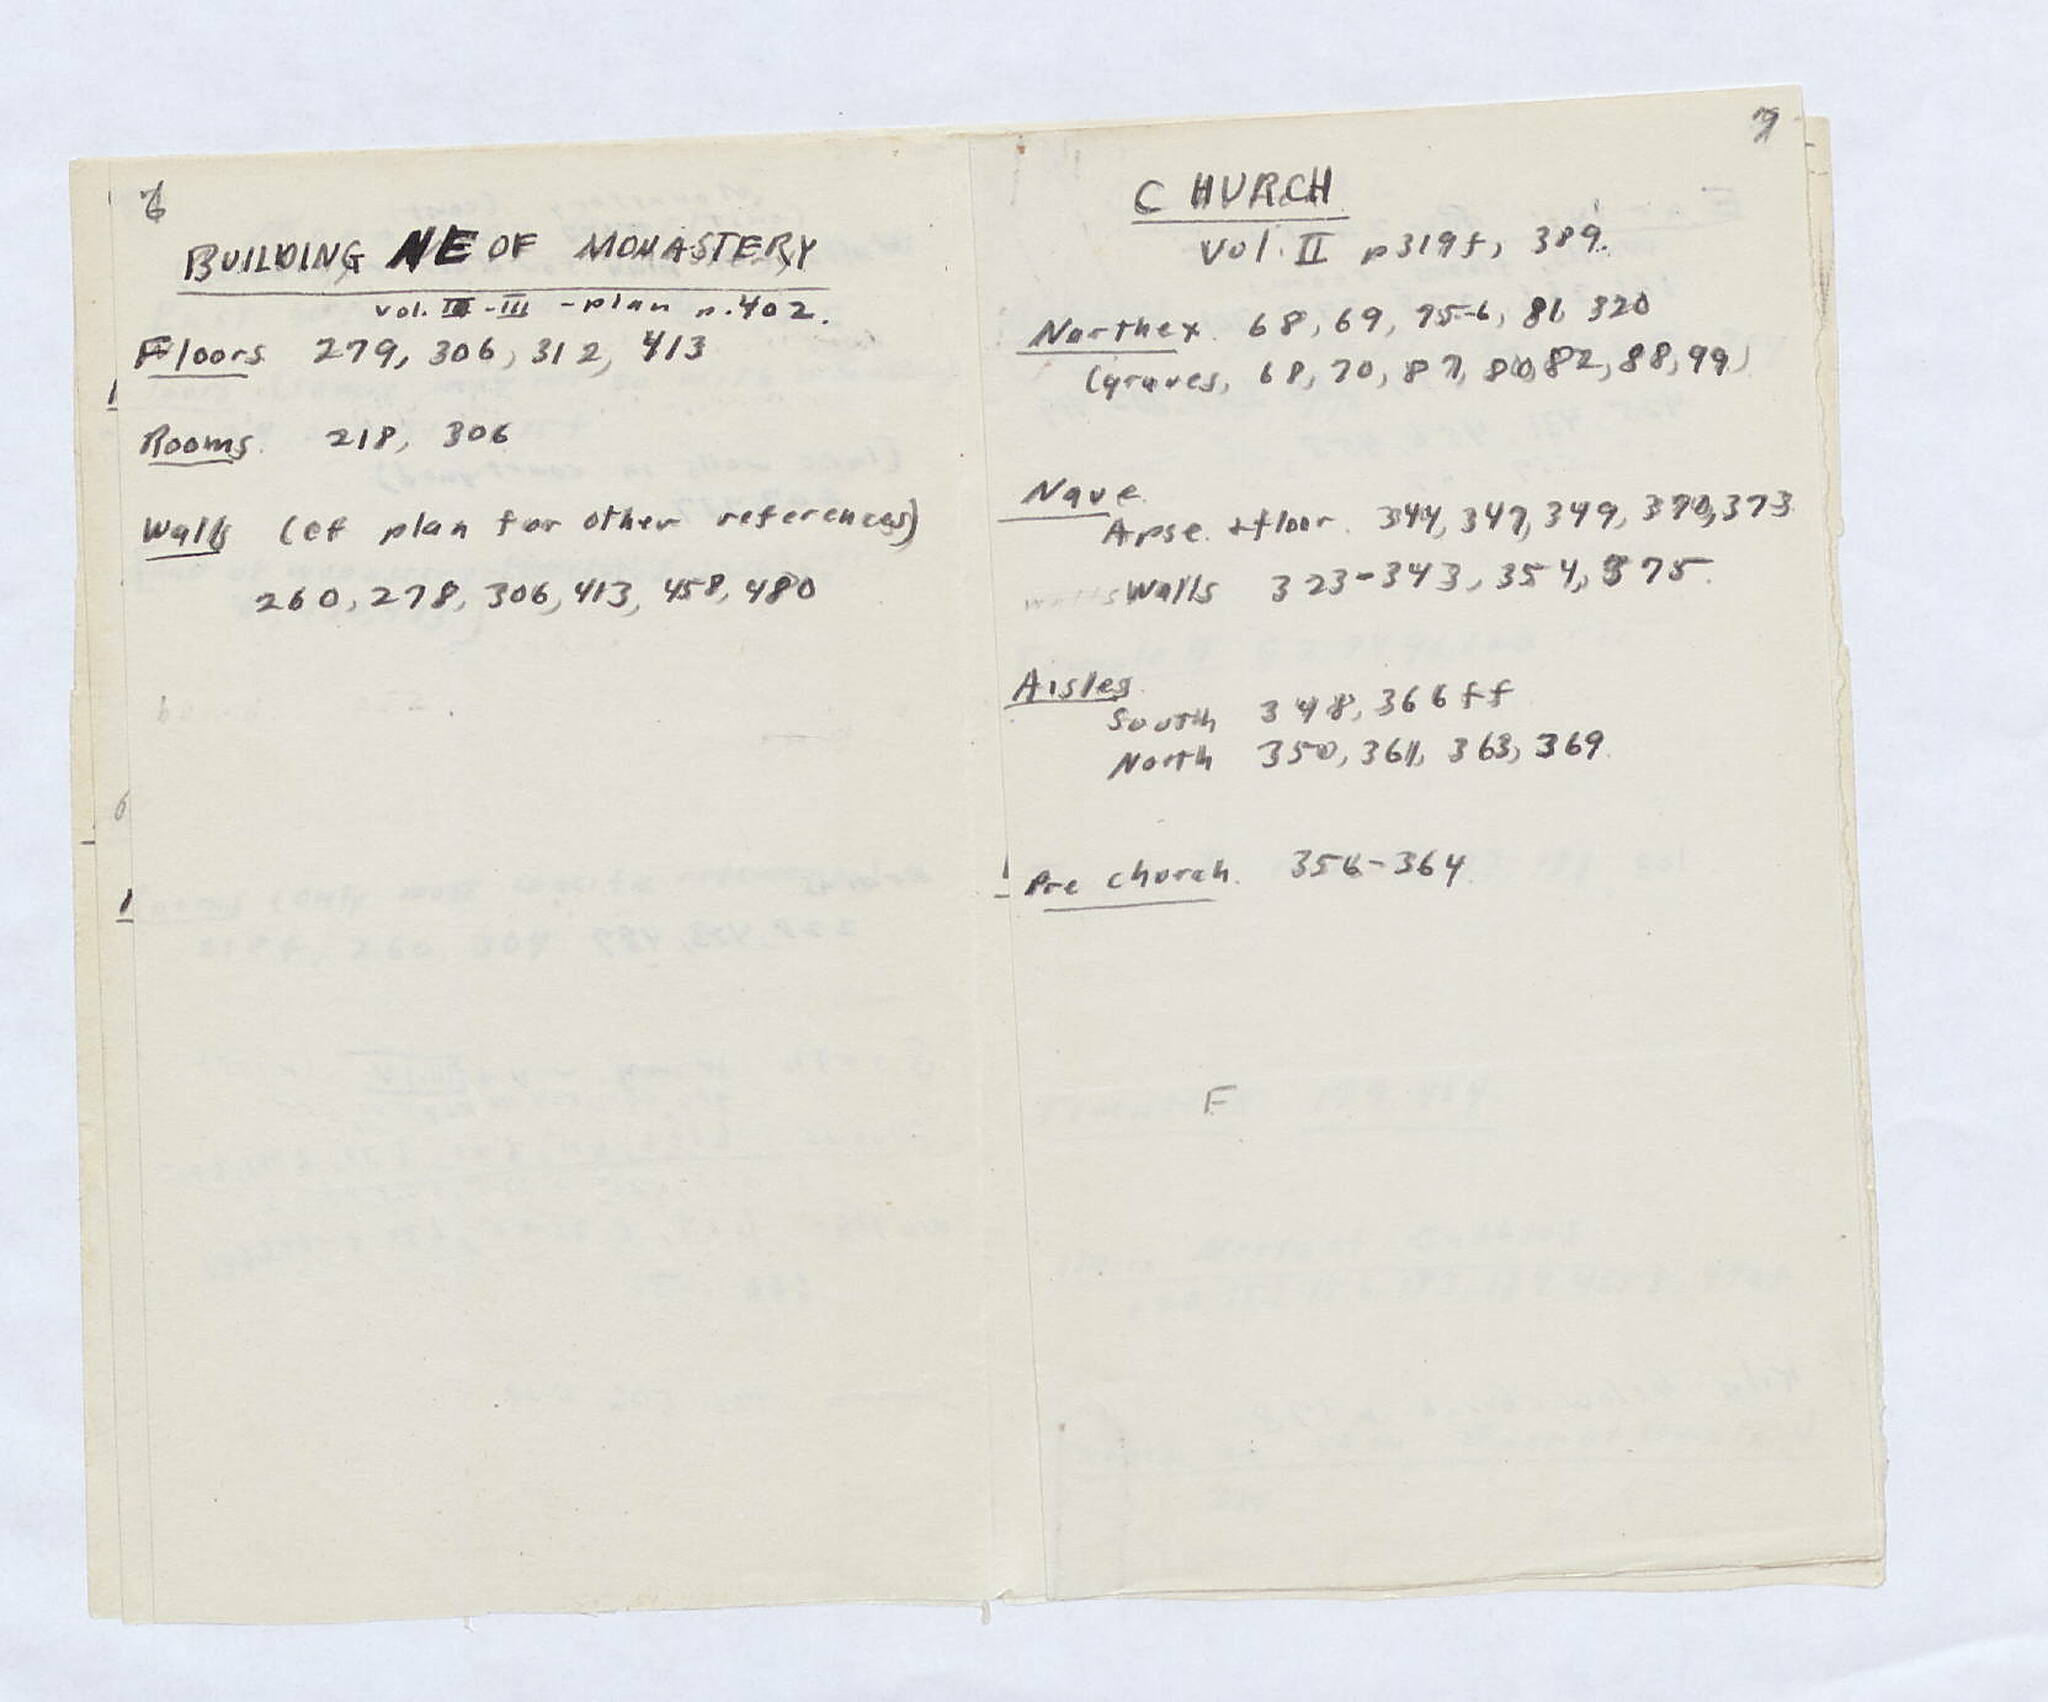 6
BUILDING NE OF MONASTERY
vol. II-III - plan p. 402.
Floors 279, 306, 312, 413
Rooms. 218, 306
Walls (cf plan for other references)
260, 278, 306, 413, 458, 480
7
CHURCH
Vol. II p319f, 389.
Narthex. 68, 69, 75-6, 81, 320
(graves, 68, 70, 87, 80, 82, 88, 99)
Nave
Apse. + floor. 344, 347, 349, 370, 373
Walls 323-343, 354, 375.
Aisles
South 348, 366ff
North 350, 361, 363, 369.
Pre church. 356-364
F